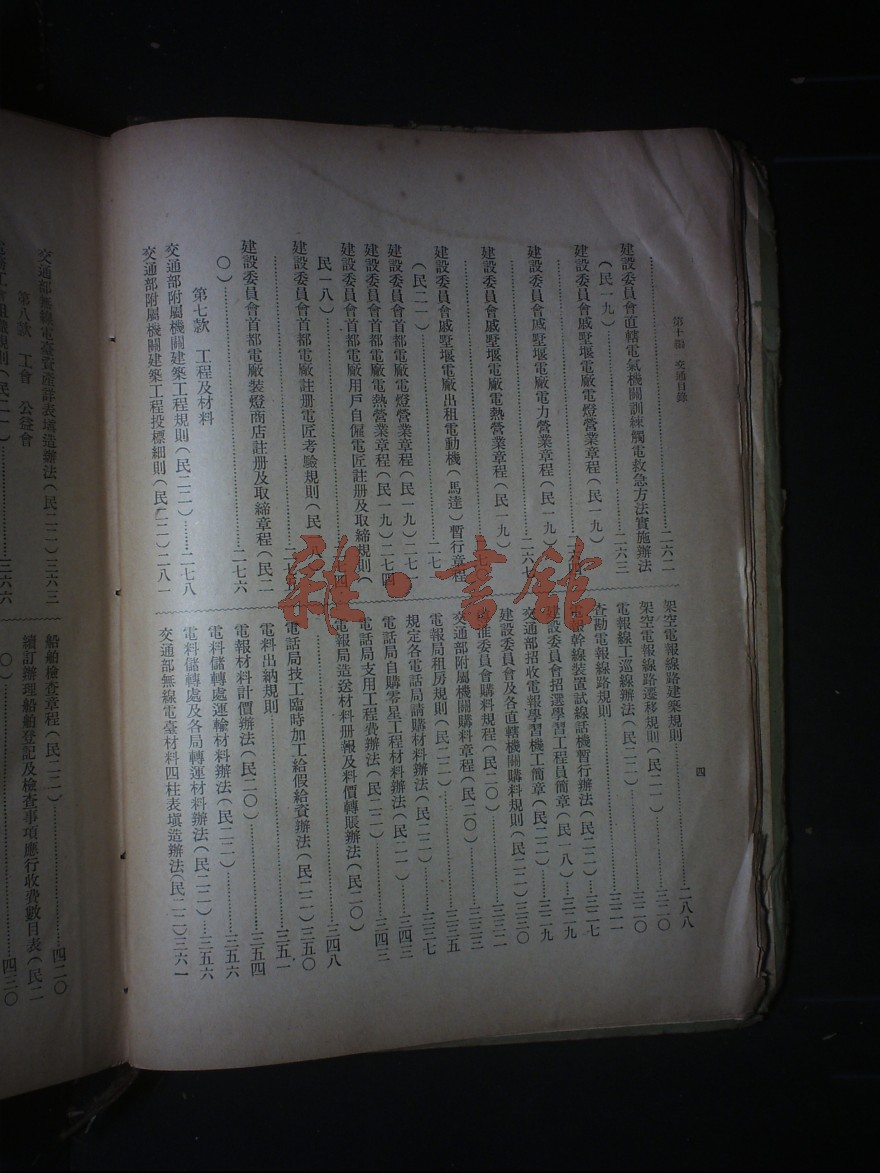 第十編　交通目錄
四
……二六二
建設委員會直轄電氣機關訓練觸電救急方法實施辦法
（民一九）……二六三
建設委員會戚墅堰電廠電燈營業章程（民一九）
建設委員會戚墅堰電廠電力營業章程（民一九）
……二六
建設委員會戚墅堰電廠電熱營業章程（民一九）
建設委員會戚墅堰電廠出租電動機（馬達）暫行章程
（民二一）……二七
建設委員會首都電廠電燈營業章程（民一九）二七一
建設委員會首都電廠電熱營業章程（民一九）二七四
建設委員會首都電廠用戶自僱電匠註册及取締規則（
民一八）
建設委員會首都電廠註册電匠考驗規則（民
建設委員會首都電廠裝燈商店註册及取締章程（民二
〇）……二七六
第七款　工程及材料
交通部附屬機關建築工程規則（民二二）……二七八
交通部附屬機關建築工程投標細則（民二二）二八一
架空電報線路建築規則……二八八
架空電報線路遷移規則（民二一）……三二〇
電報線工巡線辦法（民二二）……三二〇
查勘電報線路規則……三二一
幹線裝置試線話機暫行辦法（民二二）…三二七
建設委員會招選學習工程員簡章（民一八）三二九
交通部招收電報學習機工簡章（民二二）…三二九
建設委員會及各直轄機關購料規則（民二二）三三〇
委員會購料規程（民二〇）……三三二
交通部附屬機關購料章程（民二〇）……三三三
電報局租房規則（民二一）……三三五
規定各電話局請購材料辦法（民二二）……三三七
電話局自購零星工程材料辦法（民二一）…三四三
電話局支用工程費辦法（民二二）……三四三
電報局造送材料册報及料價轉賬辦法（民二〇）
……三四八
電話局技工臨時加工給假給資辦法（民二二）三五〇
電料出納規則……三五一
電報材料計價辦法（民二〇）……三五四
電料儲轉處運輸材料辦法（民二二）……三五六
電料儲轉處及各局轉運材料辦法（民二二）…三五六
交通部無線電臺材料四柱表塡造辦法（民二二）三六一
交通部無線電臺資產詳表塡造辦法（民二二）三六三
第八款　工會　公益會
工會組織規則（民二一）……三六六
船舶檢查章程（民二二）……四二〇
續訂辦理船舶登記及檢查事項應行收費數目表（民二
〇）……四三〇
雜·書館